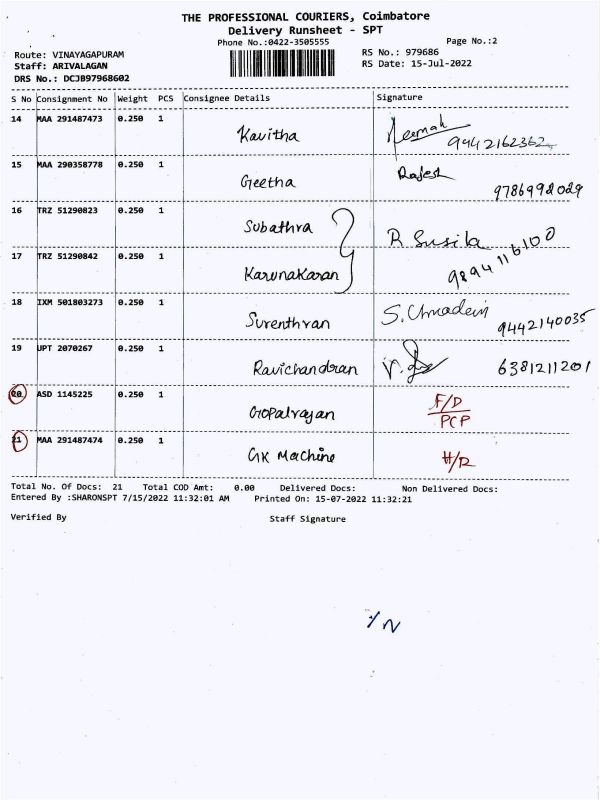 THE PROFESSIONAL COURIERS, Coimbatore
Delivery Runsheet - SPT
Phone No.:0422-3505555
Page No.:2
Route: VINAYAGAPURAM
RS No.: 979686
Staff: ARIVALAGAN
RS Date: 15-Jul-2022
DRS No.: DCJB97968602
S No Consignment No Weight PCS Consignee Details Signature
14 MAA 291487473 0.250 1 Kavitha 9442162362
15 MAA 290358778 0.250 1 Geetha Rajesh 9786992029
16 TRZ 51290823 0.250 1 Subathra R Susila
17 TRZ 51290842 0.250 1 Karunakaran 9894116100
18 IXM 501803273 0.250 1 Surenthran 9442140035
19 UPT 2070267 0.250 1 Ravichandran 6381211201
20 ASD 1145225 0.250 1 Gopalrayan F/D
PCP
21 MAA 291487474 0.250 1 GK Machine H/R
Total No. Of Docs: 21 Total COD Amt: 0.00 Delivered Docs: Non Delivered Docs:
Entered By :SHARONSPT 7/15/2022 11:32:01 AM Printed On: 15-07-2022 11:32:21
Verified By Staff Signature